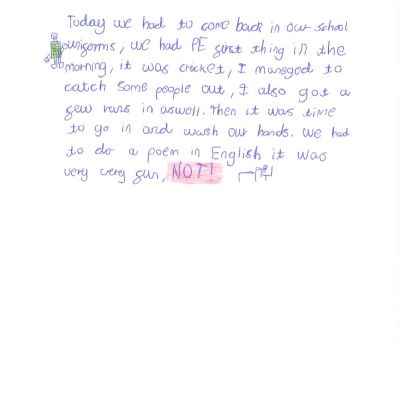 Today we had to come back in our school
uniforms, we had PE first thing in the
morning, it was cricket, I managed to
catch some people out, I also got a
few runs in aswell. Then it was time
to go in and wash our hands. we had
to do a poem in English it was
very very fun, NOT!